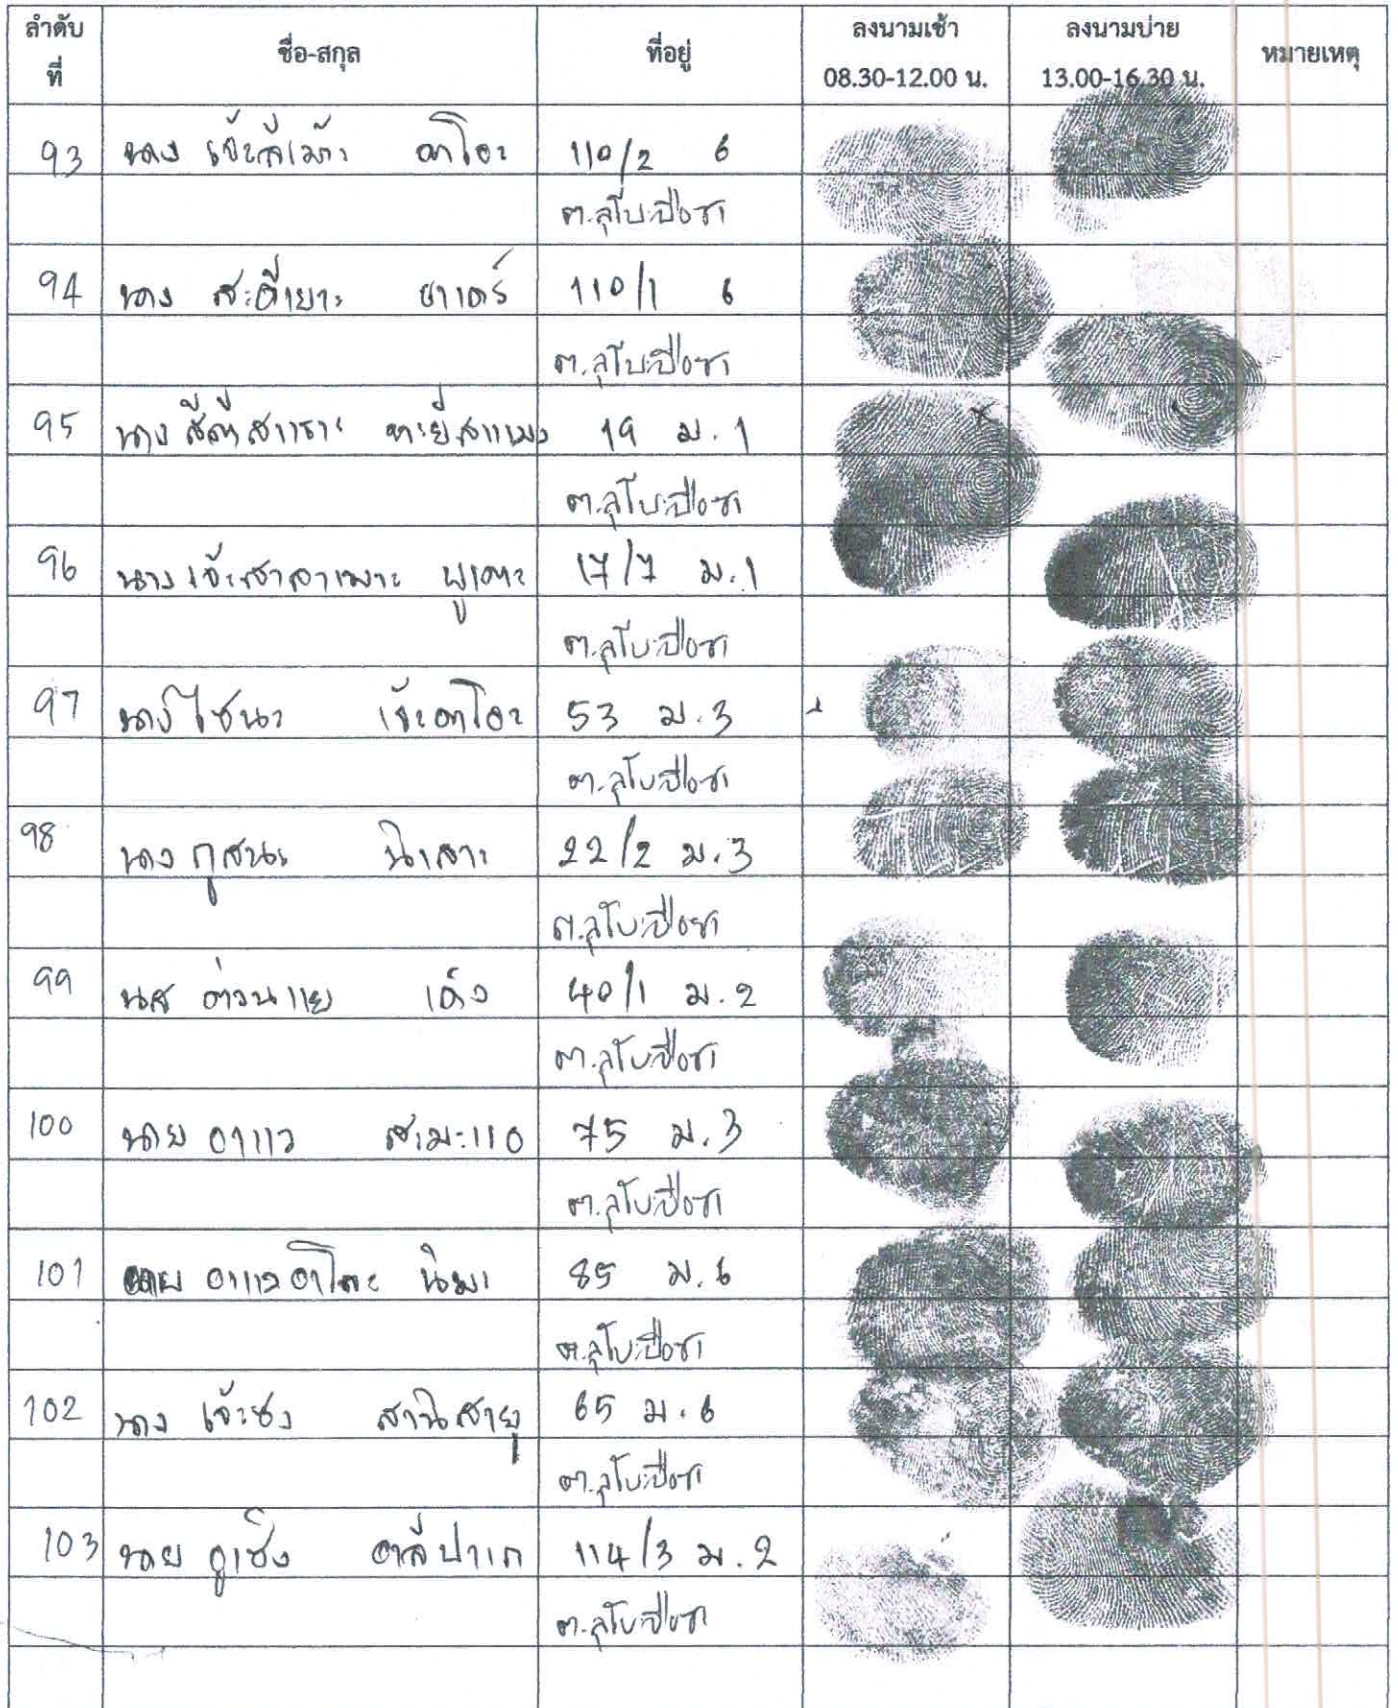 ลำดับที่ ชื่อ-สกุล ที่อยู่ ลงนามเช้า 08.30-12.00 น. ลงนามบ่าย 13.00-16.30 น. หมายเหตุ
93 นาง เจ๊ะสีเมาะ อาโอะ 110/2 6
ต.ลุโบะบือซา
94 นาง สะตียาะ ยาเดร์ 110/1 6
ต.ลุโบะบือซา
95 นาง 19 ม.1
ต.ลุโบะบือซา
96 นาง 17/7 ม.1
ต.ลุโบะบือซา
97 นาง ไซนะ เจ๊ะอาโอะ 53 ม.3
ต.ลุโบะบือซา
98 นาง กูสนะ นิเลาะ 22/2 ม.3
ต.ลุโบะบือซา
99 นส ต่วนแย เด็ง 40/1 ม.2
ต.ลุโบะบือซา
100 นาย อาแว สะมะแอ 75 ม.3
ต.ลุโบะบือซา
101 นาย นิมา 85 ม.6
ต.ลุโบะบือซา
102 นาง เจ๊ะซง สานิสายุ 65 ม.6
ต.ลุโบะบือซา
103 นาย กูเซ็ง อาลีปาเก 114/3 ม.2
ต.ลุโบะบือซา